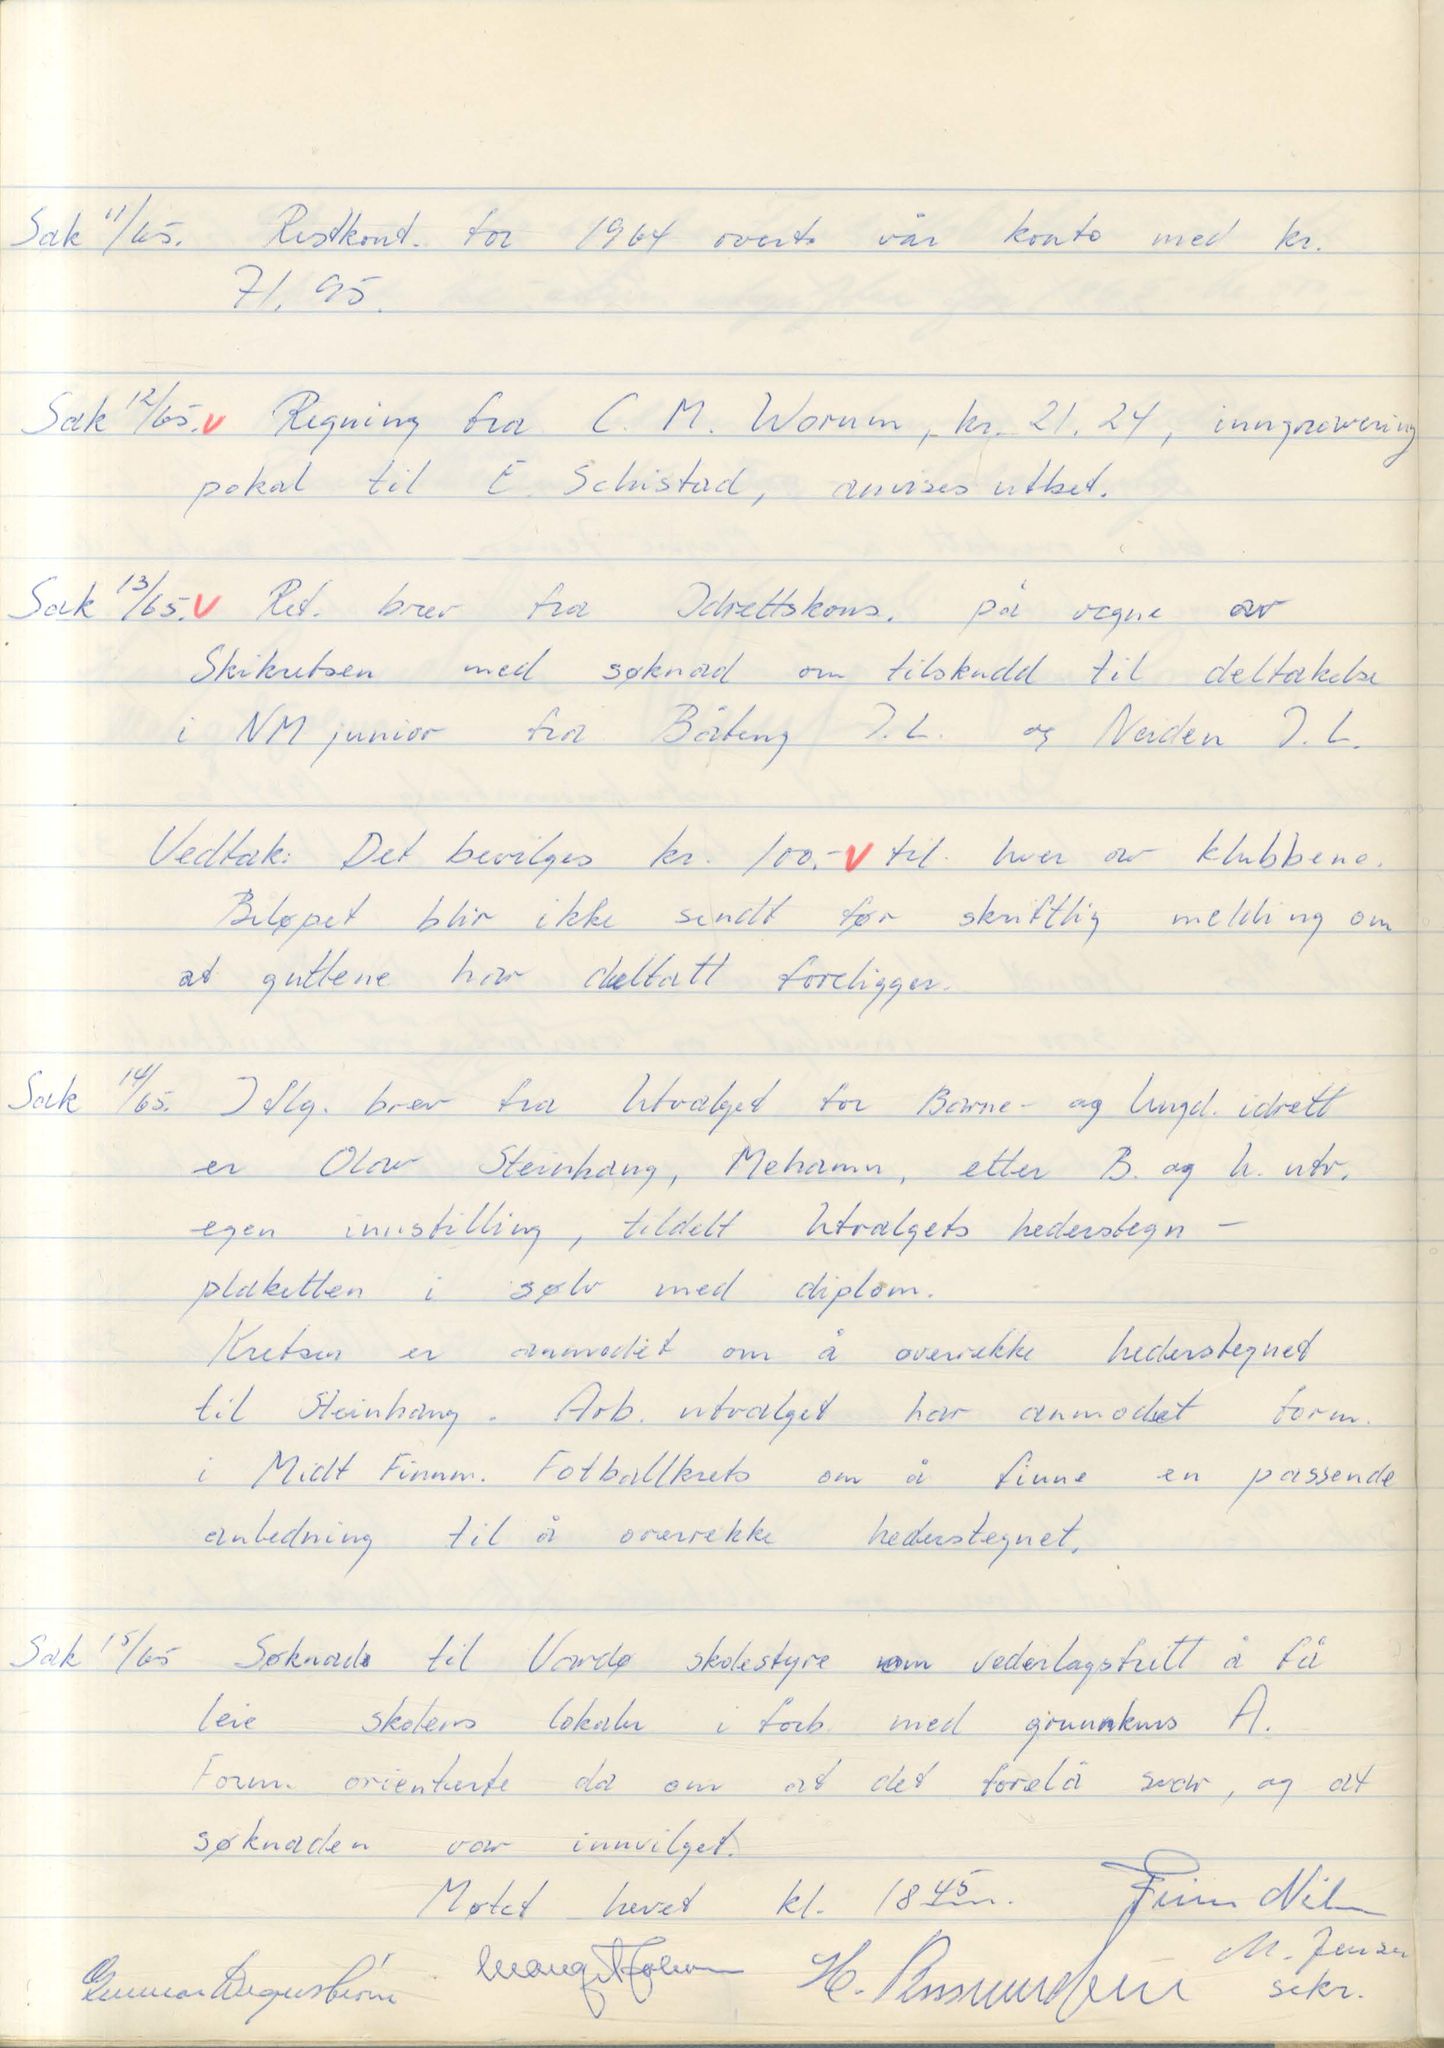 Sak 11/65. Restkont. for 1964 overf. vår konto med kr.
71,95.
Sak 12/65. v Regning fra C. M. Worum, kr. 21,24, inngravering
pokal til E. Schistad, anvises utbet.
Sak 13/65. v Ref. brev fra Idrettskons. på vegne av
Skikretsen med søknad om tilskudd til deltakelse
i NM junior fra Båteng I.L. og Neiden I.L.
Vedtak: Det bevilges kr. 100,- v til hver av klubbene.
Beløpet blir ikke sendt før skriftlig melding om
at guttene har deltatt foreligger.
Sak 14/65. Iflg. brev fra Utvalget for Barne- og Ungd. idrett
er Olav Steinhaug, Mehamn, etter B. og U. utv.
egen innstilling, tildelt Utvalgets hederstegn -
plaketten i sølv med diplom.
Kretsen er anmodet om å overrekke hederstegnet
til Steinhaug. Arb. utvalget har anmodet form.
i Midt Finnm. Fotballkrets om å finne en passende
anledning til å overrekke hederstegnet.
Sak 15/65 Søknad til Vardø skolestyre om vederlagsfritt å få
leie skolens lokaler i forb. med grunnkurs A.
Form. orienterte da om at det forelå svar, og at
søknaden var innvilget.
Møtet hevet kl. 18 45
Finn
M. Jensen
Gunnar
H.
sekr.